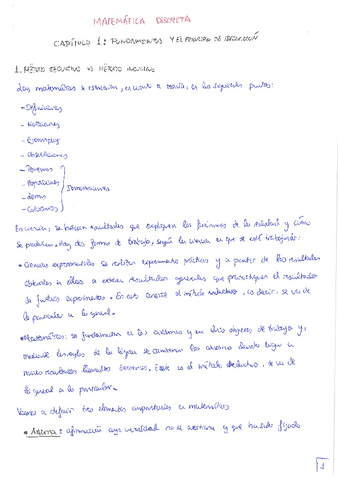 MATEMÁTICA DISCRETA
CAPÍTULO 1: FUNDAMENTOS Y EL PRINCIPIO DE INDUCCIÓN
1. MÉTODO DEDUCTIVO VS MÉTODO INDUCTIVO
Las matemáticas se estructuran, en cuanto a teoría, en los siguientes puntos:
- Definiciones
- Notaciones
- Ejemplos
- Observaciones
- Teoremas
- Proposiciones
- Lemas
- Corolarios
Demostraciones
En ciencias, se buscan resultados que expliquen los fenómenos de la naturaleza y cómo
se producen. Hay dos formas de trabajo, según la ciencia en que se esté trabajando:
• Ciencias experimentales: se realizan experimentos prácticos y a partir de los resultados
obtenidos en ellos se extraen resultados generales que el resultado
de futuros experimentos. En esto consiste el método inductivo, es decir, se va de
lo particular a lo general.
• Matemáticas: se fundamenta en los axiomas y en otros objetos de trabajo y,
mediante las reglas de la lógica se combinan los axiomas dando lugar a
nuevos resultados llamados teoremas. Este es el método deductivo, se va de
lo general a lo particular.
Vamos a definir tres elementos importantes en matemáticas
• Axioma: afirmación cuya veracidad no se cuestiona y que ha sido fijada
1